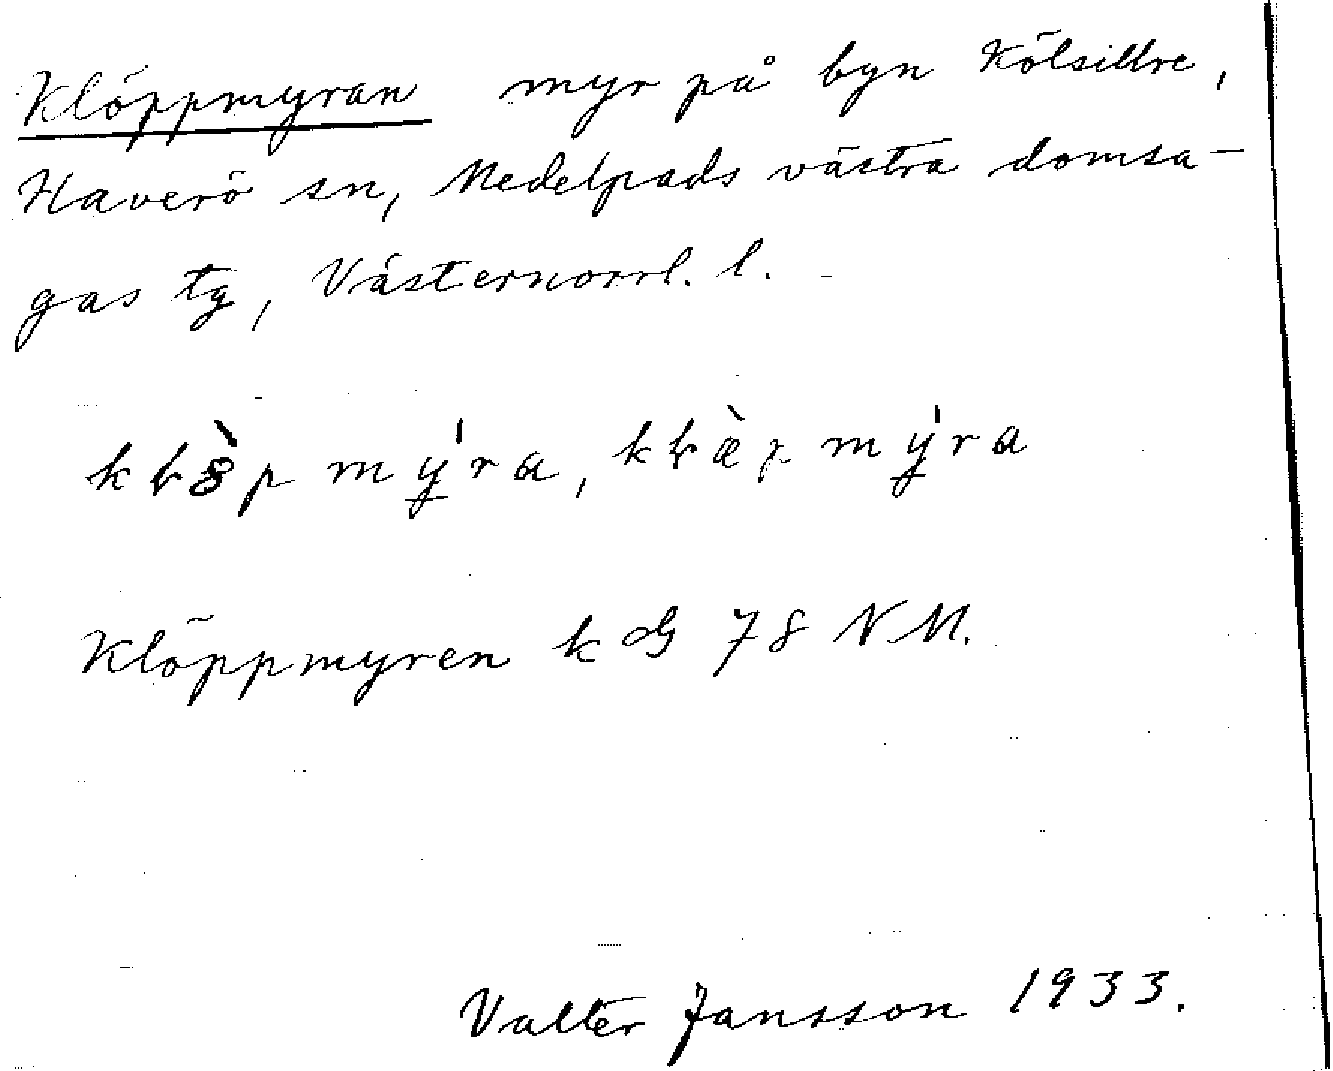 Klöppmyran myr på byn Kölsillre,
Haverö sn, Medelpads västra domsa-
gas tg, Västernorrl. l.
Klöppmyren k 78 NM.
Valter Jansson 1933.